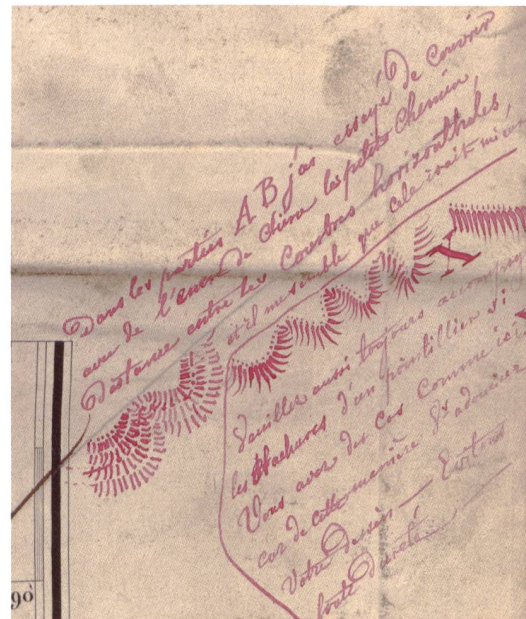 Dans les parties A B j'ai essayé de couvrir
avec de l'encre de chine les petits Chemin,
Distance entre les Courbes horizonthales,
et il me semble que cela irait mieu
A
Veuillez aussi toujours accompag
les Hachures d'un pointillier si
Vous avez des cas Comme ici
car de cette manière
Votre dessin —
toute dureté
90